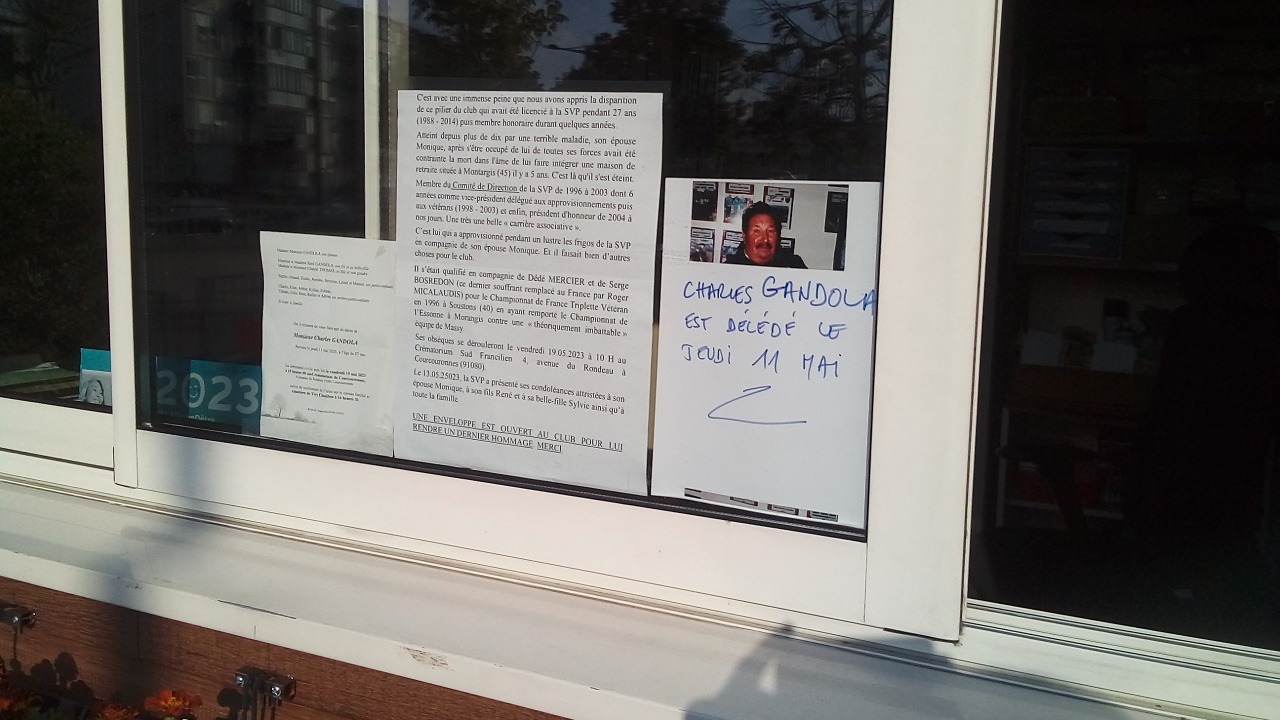 Madame Monique GANDOLA son épouse
Monsieur Charles GANDOLA
2023
C'est avec une immense peine que nous avons appris la disparition
de ce pilier du club qui avait été licencié à la SVP pendant 27 ans
(1988 - 2014) puis membre honoraire durant quelques années.
Atteint depuis plus de dix par une terrible maladie, son épouse
Monique, après s'être occupé de lui de toutes ses forces avait été
contrainte la mort dans l'âme de lui faire intégrer une maison de
retraite située à Montargis (45) il y a 5 ans. C'est là qu'il s'est éteint.
Membre du Comité de Direction de la SVP de 1996 à 2003 dont 6
années comme vice-président délégué aux approvisionnements puis
aux vétérans (1998 - 2003) et enfin, président d'honneur de 2004 à
nos jours. Une très une belle « carrière associative ».
C'est lui qui a approvisionné pendant un lustre les frigos de la SVP
en compagnie de son épouse Monique. Et il faisait bien d'autres
choses pour le club.
Il s'était qualifié en compagnie de Dédé MERCIER et de Serge
BOSREDON (ce dernier souffrant remplacé au France par Roger
MICALAUDIS) pour le Championnat de France Triplette Vétéran
en 1996 à Soustons (40) en ayant remporté le Championnat de
l'Essonne à Morangis contre une « théoriquement imbattable »
équipe de Massy.
Ses obsèques se dérouleront le vendredi 19.05.2023 à 10 H au
Crématorium Sud Francilien 4, avenue du Rondeau à
Courcouronnes (91080).
Le 13.05.2023, la SVP a présenté ses condoléances attristées à son
épouse Monique, à son fils René et à sa belle-fille Sylvie ainsi qu'à
toute la famille.
UNE ENVELOPPE EST OUVERT AU CLUB POUR LUI
RENDRE UN DERNIER HOMMAGE MERCI
CHARLES GANDOLA
EST DÉCÉDÉ LE
JEUDI 11 MAI